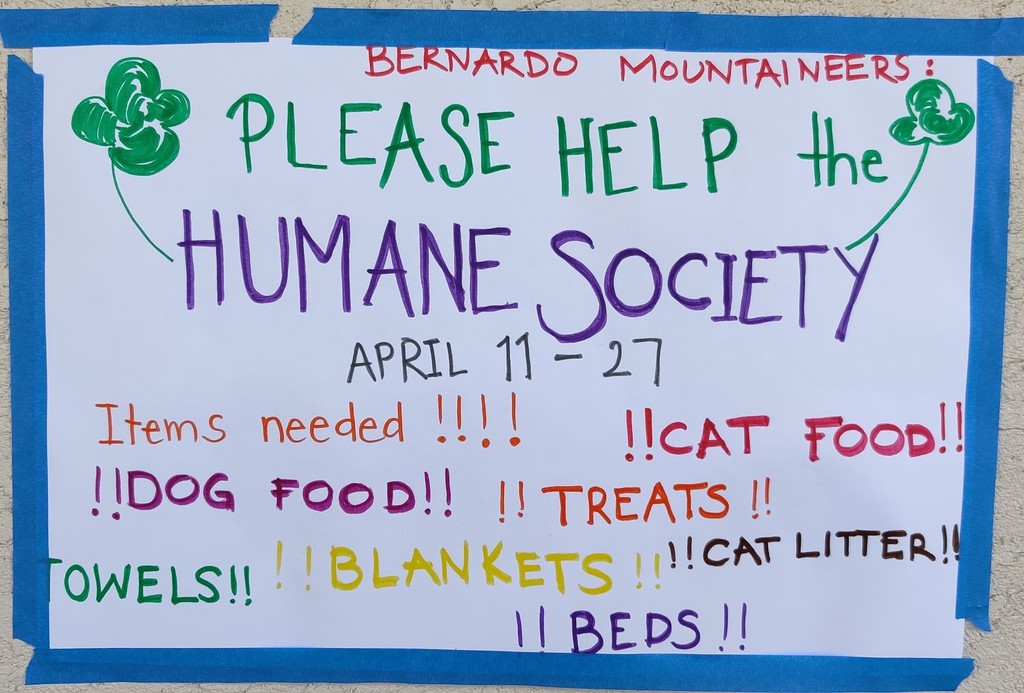 BERNARDO MOUNTAINEERS:
PLEASE HELP the
HUMANE SOCIETY
APRIL 11 - 27
Items needed !!!!
!!CAT FOOD!!
!!DOG FOOD!!
!! TREATS !!
TOWELS!!
!! BLANKETS !!
!!CAT LITTER!!
!! BEDS !!